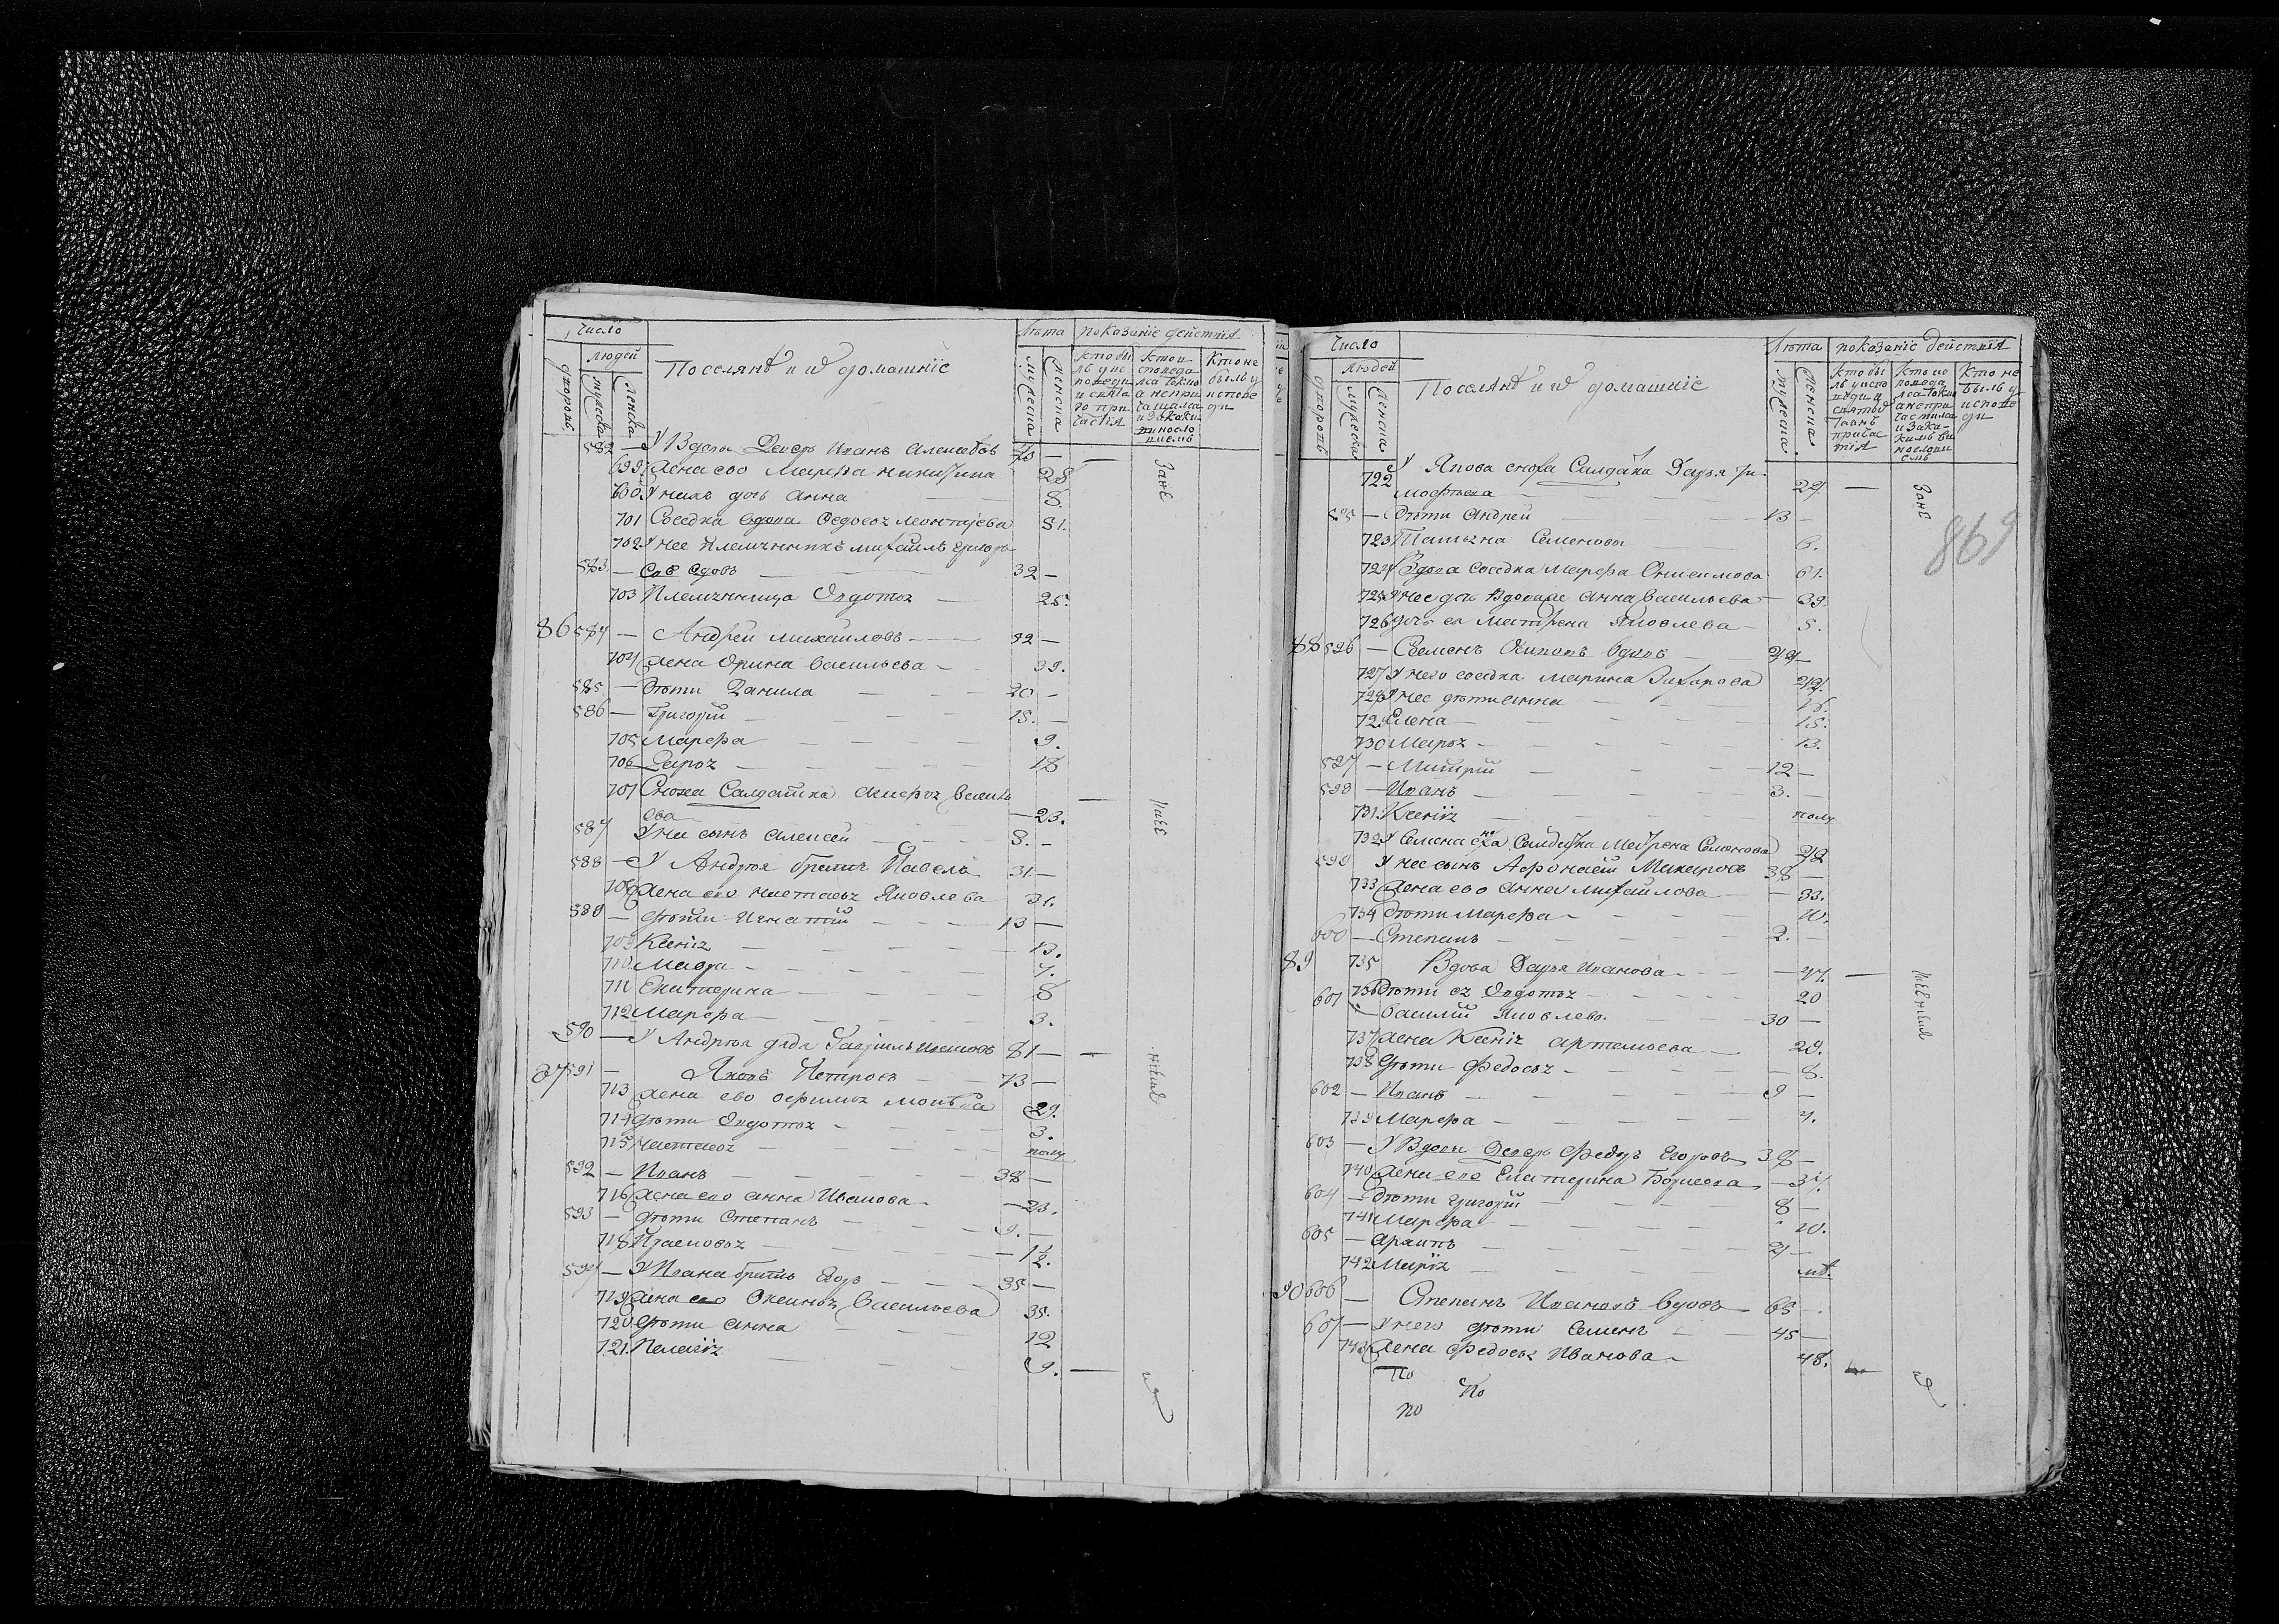 Число
Лѣта показаніе действія
людей
Поселянѣ и ихъ домашніе
дворовъ
мужеска
женска
мужеска
женска
кто бы
лъ у испо
поведи
и свята
го при
частія
кто и
споведа
лса токмо
а непри
чащался
и за каки
кто не
былъ у
испове
ди
582 — У Вдовы Деверь Иванъ —
699 жена ево Марфа никитина 28
700 У нихъ дочь Анна — 8.
701 Соседка вдова Федосья леонтьева 81.
702 У нее племянникъ михаилъ
583. — вдовъ — 32 —
703 Племянница Овдотья — 25.
86 584 — Андрей михаиловъ — 32 —
704 жена Орина васильева — 39.
585 — Дѣти Данила — 20 —
586 — Григорій — 15. —
705 Марфа — 9.
706 Дарья — 18
707 Сноха Салдатка
ова — 23.
587 У неи сынъ алексей 8. —
588 — У Андрея братъ Павелъ 31 —
708 жена ево настасья Яковлева 31.
589 — дѣти Игнатій — 13 —
709 Ксенія — 13.
710 Мавра — 7.
711 Екатерина — 8
712 Марфа — 3.
590 — У Андрея дядя Гавріилъ Ивановъ 81 —
87 591 — Яковъ Петровъ — 73 —
713 жена ево 29.
714 дѣти Овдотья — 3.
715 настасья — полу
592 — Иванъ — 38 —
716 жена ево анна Иванова — 23.
593 — дѣти Степанъ — 9. —
718 Прасковья — 1½.
594 — У Ивана братъ Егоръ — 35 —
719 жена ево Оксинья Васильева 35.
720 дѣти анна — 12
721. Пелагія — 9. —
Число
Лѣта показаніе действія
людей
Поселянѣ и ихъ домашніе
дворовъ
мужеска
женска
мужеска
женска
кто бы
лъ у испо
вѣди и
святыхъ
таинъ
причас
тія
кто ис
поведа
лса токмо
а непри
частилса
и за ка-
кимъ ви
кто не
былъ у
испове
ди
869
722 У Якова сноха Салдатка Дарья ти-
мофѣева — 22. —
595 — Дѣти Андрей — 13 —
723 Татьяна Семенова — 6.
724 Вдова соседка Марфа Онисимова 61.
725 У нее дочь вдовая Анна Васильева — 39.
726 дочь ея Матрена Яковлева — 5.
88 596 — Семенъ Осиповъ вдовъ — 44 —
727 У него соседка марина Захарова 42.
728 У нее дѣти анна — 16.
729 Елена — 15.
730 Марья — 13.
597 — Митрій — 12 —
598 — Иванъ — 3. —
731. Ксенія — полу
732 У Семена Салдатка Матрена Семенова 48
599 У нее сынъ Афонасій Макаровъ 38 —
733 жена ево Анна михайлова — 33.
734 дѣти Марфа — 10.
600 — Степанъ — 2. —
89 735 Вдова Дарья Иванова — 47. —
736 Дѣти ея Овдотья — 20
601 — Василій Яковлевъ 30 —
737 жена Ксенія артемьева — 29.
738 дѣти Федосья — 8.
602 — Иванъ — 9 —
739 Марфа — 4.
603 — У Вдовы Деверь Федоръ Егоровъ 38 —
740 жена ево Екатерина Борисова — 37.
604 — дѣти григорій — 8 —
741 Марфа — 10.
605 — архипъ — 4 —
742 Марія —
90 606 — Степанъ Ивановъ вдовъ 65 —
607 — У него дѣти Семенъ — 45 —
743 жена Федосья Иванова — 48. —
По
По
по